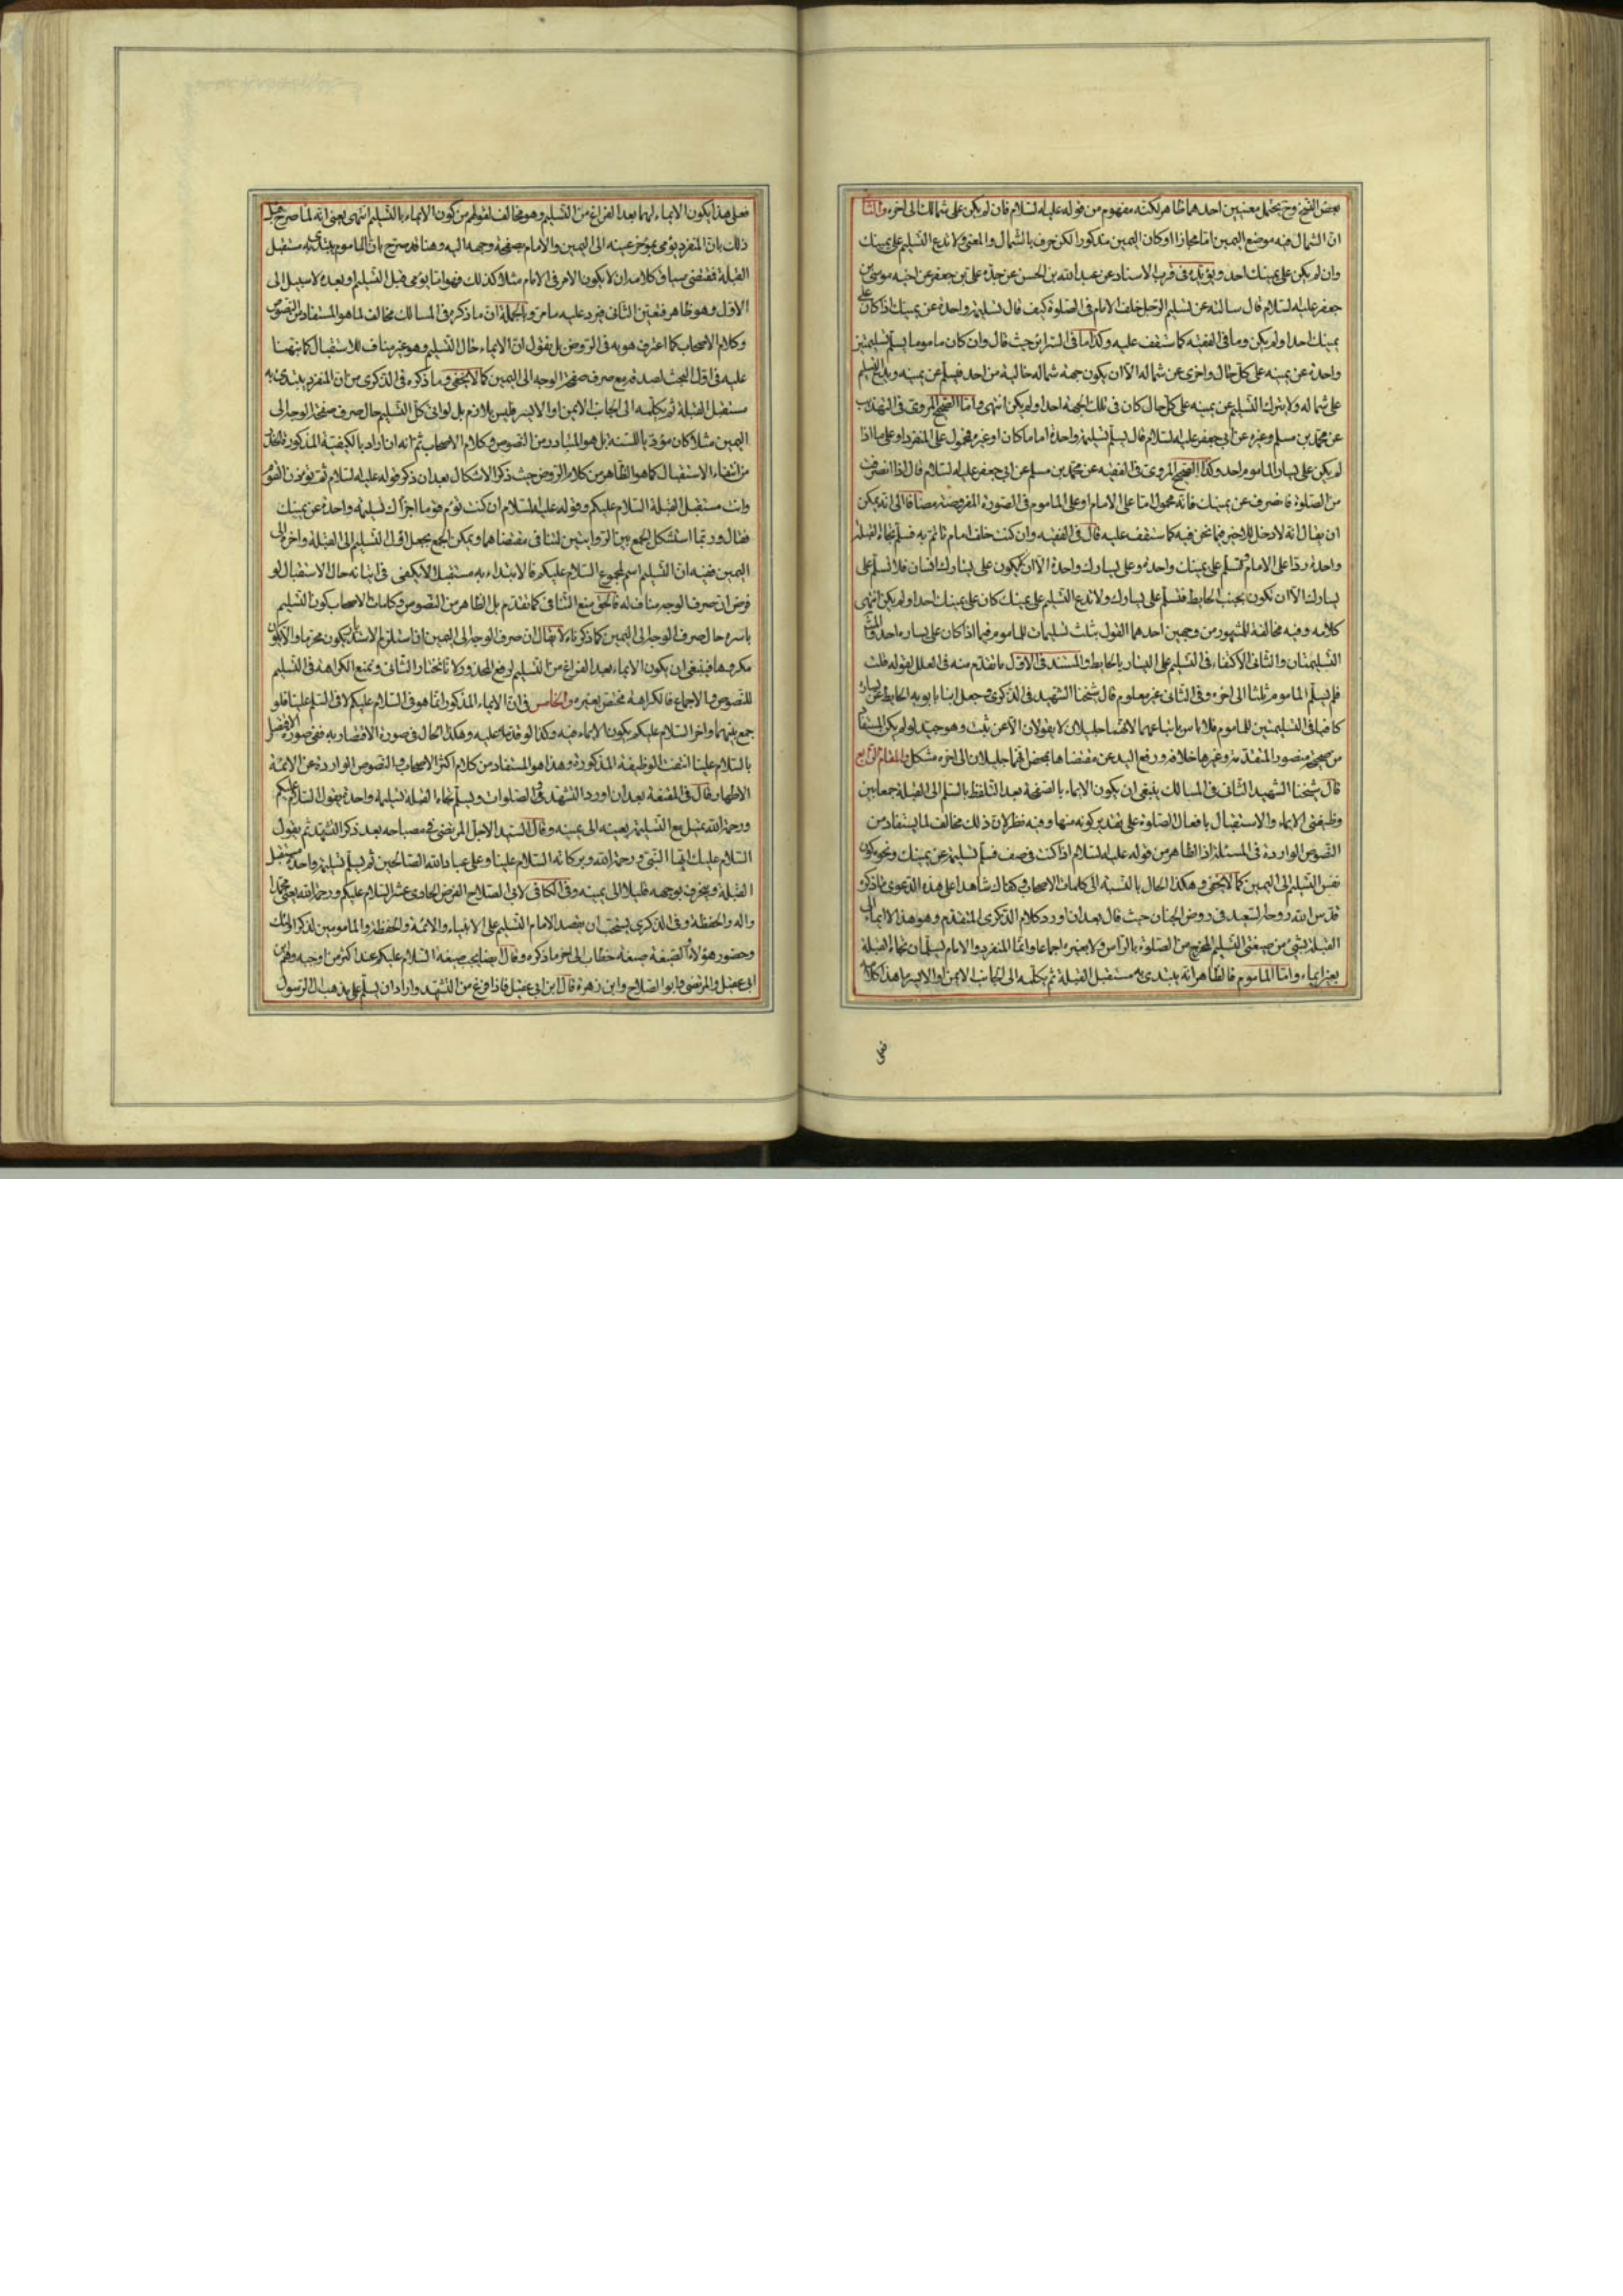 بعض النسخ وح يحتمل معنيين احدهما ظاهر لكنه مفهوم من قوله عليه السلام فان لم يكن على شمالك الى اخره والثا
انّ الشمال فيه موضع اليمين امّا مجازا اوكان اليمين مذكورا لكن حرف بالشمال والمعنى ولا تدع التسليم على يمينك
وان لم يكن على يمينك احد ويؤيّده فى قرب الاسناد عن عبد الله بن الحسن عن جدّه على بن جعفر عن اخيه موسى بن
جعفر عليه السلام قال سالته عن تسليم الرّجل خلف الامام فى الصّلوة كيف قال تسليمة واحدة عن يمينك اذا كان على
يمينك احد او لم يكن وما فى الفقيه كما ستقف عليه وكذا ما فى السّرائر حيث قال وان كان ماموما يسلّم تسليمتين
واحدة عن يمينه على كلّ حال واخرى عن شماله الّا ان يكون جهة شماله خالية من احد فيسلّم عن يمينه ويدع التسليم
على شماله ولا يترك التّسليم عن يمينه على كلّ حال كان فى تلك الجهة احد او لم يكن انتهى وامّا الصّحيح المروى فى التهذيب
عن محمّد بن مسلم وغيره عن ابى جعفر عليه السلام قال يسلّم تسليمة واحدة اماما كان او غيره فمحمول على المنفرد او على ما اذا
لم يكن على يسار الماموم احد وكذا الصّحيح المروى فى الفقيه عن محمّد بن مسلم عن ابى جعفر عليه السلام قال اذا انصرفت
من الصّلوة فانصرف عن يمينك فانّه محمول امّا على الامام او على الماموم فى الصّورة المفروضة مضافا الى انه يمكن
ان يقال انّه لا دخل للاخير فيما نحن فيه كما ستقف عليه قال فى الفقيه وان كنت خلف امام تاتمّ به فسلّم تجاه القبلة
واحدة ردّا على الامام وتسلّم على يمينك واحدة وعلى يسارك واحدة الّا ان لا يكون على يسارك انسان فلا تسلّم على
يسارك الّا ان تكون بجنب الحايط فتسلّم على يسارك ولا تدع التسليم على يمينك كان على يمينك احد او لم يكن انتهى
كلامه وفيه مخالفة للمشهور من وجهين احدهما القول بثلث تسليمات للماموم فيما اذا كان على يساره احد والمش
التّسليمتان والثّانى الاكتفاء فى التسليم على اليسار بالحايط والمستند فى الاوّل ما تقدّم منه فى العلل لقوله قلت
فلم يسلّم الماموم ثلثا الى اخره وفى الثّانى غير معلوم قال شيخنا الشّهيد فى الذّكرى وجعل ابنا بابويه الحايط عن يساره
كافيا فى التّسليمتين للماموم فلا باس باتباعهما لانّهما جليلان لا يقولان الّا عن ثبت وهو جيّد لو لم يكن المستفاد
من صحيحة منصور المتقدّمة وغيرها خلافه ورفع اليد عن مقتضاها بمحض انّهما جليلان الى اخره مشكل والمقام الرّابع
قال شيخنا الشّهيد الثّانى فى المسالك ينبغى ان يكون الايماء بالصّفحة بعد التّلفّظ بالسّلم الى القبلة جمعا بين
وظيفتى الايماء والاستقبال بافعال الصّلوة على تقدير كونه منها وفيه نظر لان ذلك مخالف لما يستفاد من
النّصوص الواردة فى المسئلة اذ الظّاهر من قوله عليه السلام اذا كنت فى صف فسلّم تسليمة عن يمينك ونحوه كون
نفس التّسليم الى اليمين كما لا يخفى وهكذا الحال بالنّسبة الى كلمات الاصحاب وكفاك شاهدا على هذه الدّعوى ما ذكره
قدّس الله روحه السّعيد فى روض الجنان حيث قال بعد ان اورد كلام الذّكرى المتقدّم وهو هذا لا ايماء الى
القبلة بشئ من صيغتى التّسليم المخرج من الصّلوة بالرّاس ولا بغيره اجماعا وانّما المنفرد والامام يسلّمان تجاه القبلة
بغير ايماء وامّا الماموم فالظّاهر انّه يبتدى به مستقبل القبلة ثمّ يكمّله الى الجانب الايمن او الايسر ما هذا كلامه
فعلى
فعلى هذا يكون الايماء لهما بعد الفراغ من التّسليم وهو مخالف لقولهم من كون الايماء بالتّسليم انتهى يعنى انّه لمّا صرّح قبل
ذلك بانّ المنفرد يؤمى بمؤخر عينه الى اليمين والامام بصفحة وجهه اليه وهنا قد صرّح بان الماموم يبتدى به مستقبل
القبلة فمقتضى سياق كلامه ان لا يكون الامر فى الامام مثلا كذلك فهو امّا يؤمى قبل التّسليم او بعده لا سبيل الى
الاوّل وهو ظاهر فتعيّن الثّانى فيرد عليه ما مرّ وبالجملة انّ ما ذكره فى المسالك مخالف لما هو المستفاد من النّصوص
وكلام الاصحاب كما اعترف هو به فى الرّوض بل يقول انّ الايماء حال التّسليم وهو غير مناف للاستقبال كما نبّهنا
عليه فى اوّل المبحث لصدقه مع صرف صفحة الوجه الى اليمين كما لا يخفى وما ذكره فى الذّكرى من انّ المنفرد يبتدى به
مستقبل القبلة ثمّ يكمّله الى الجانب الايمن او الايسر فليس بلازم بل لو اتى كلّ التّسليم حال صرف صفحة الوجه الى
اليمين مثلا كان مؤدّيا للسنّة بل هو المتبادر من النّصوص وكلام الاصحاب ثمّ انّه ان اراد بالكيفيّة المذكورة التخلّص
من انتفاء الاستقبال كما هو الظّاهر من كلام الرّوض حيث ذكر الاشكال بعد ان ذكر قوله عليه السلام ثمّ تؤذن القوم
وانت مستقبل القبلة السّلام عليكم وقوله عليه السلام ان كنت تؤم قوما اجزأك تسليمة واحدة عن يمينك
فقال وربّما استشكل الجمع بين الرّوايتين لتنافى مقتضاهما ويمكن الجمع بجعل اوّل التّسليم الى القبلة واخره الى
اليمين ففيه انّ التّسليم اسم لمجموع السّلام عليكم فالابتداء به مستقبلا لا يكفى فى اتيانه حال الاستقبال لو
فرض ان صرف الوجه مناف له فالحقّ منع التّنافى كما تقدّم بل الظّاهر من النّصوص وكلمات الاصحاب كون التّسليم
باسره حال صرف الوجه الى اليمين كما ذكرناه لا يقال ان صرف الوجه الى اليمين ان استلزم الاستدبار يكون محرما والّا يكون
مكروها فينبغى ان يكون الايماء بعد الفراغ من التّسليم لرفع المحذور لانّا نختار الثّانى ونمنع الكراهة فى التّسليم
للنّصوص والاجماع فالكراهة مختصّ بغيره والخامس فى انّ الايماء المذكور انّما هو فى السّلام عليكم لا فى السّلم علينا فلو
جمع بينهما واخر السّلام عليكم يكون الايماء فيه وكذا لو قدّمه عليه وهكذا الحال فى صورة الاقتصار به ففى صورة الاقتصار
بالسّلام علينا انتفت الوظيفة المذكورة وهذا هو المستفاد من كلام اكثر الاصحاب والنّصوص الواردة عن الائمّة
الاطهار قال فى المقنعة بعد ان اورد التّشهّد فى الصّلوات ويسلّم تجاه القبلة تسليمة واحدة يقول السّلام عليكم
ورحمة الله يميل مع التّسليمة بعينه الى يمينه وقال السّيّد الاجلّ المرتضى فى مصباحه بعد ذكر التّشهّد ثمّ يقول
السّلام عليك ايّها النّبىّ ورحمة الله وبركاته السّلام علينا وعلى عباد الله الصّالحين ثمّ يسلّم تسليمة واحدة مستقبل
القبلة وينحرف بوجهه قليلا الى يمينه وفى الكافى لابى الصّلاح الفرض الحادى عشر السّلام عليكم ورحمة الله يعنى محمّدا
واله والحفظة وفى الذّكرى يستحب ان يقصد الامام التّسليم على الانبياء والائمّة والحفظة والمامومين لذكر اولئك
وحضور هؤلاء والصّيغة صيغة خطاب الى اخر ما ذكره وقال ايضا يجب صيغة السّلام عليكم عند اكثر من اوجبه وهم ابن
ابى عقيل والمرتضى وابو الصّلاح وابن زهرة قال ابن ابى عقيل فاذا فرغ من التّشهّد واراد ان يسلّم على مذهب ال الرّسول